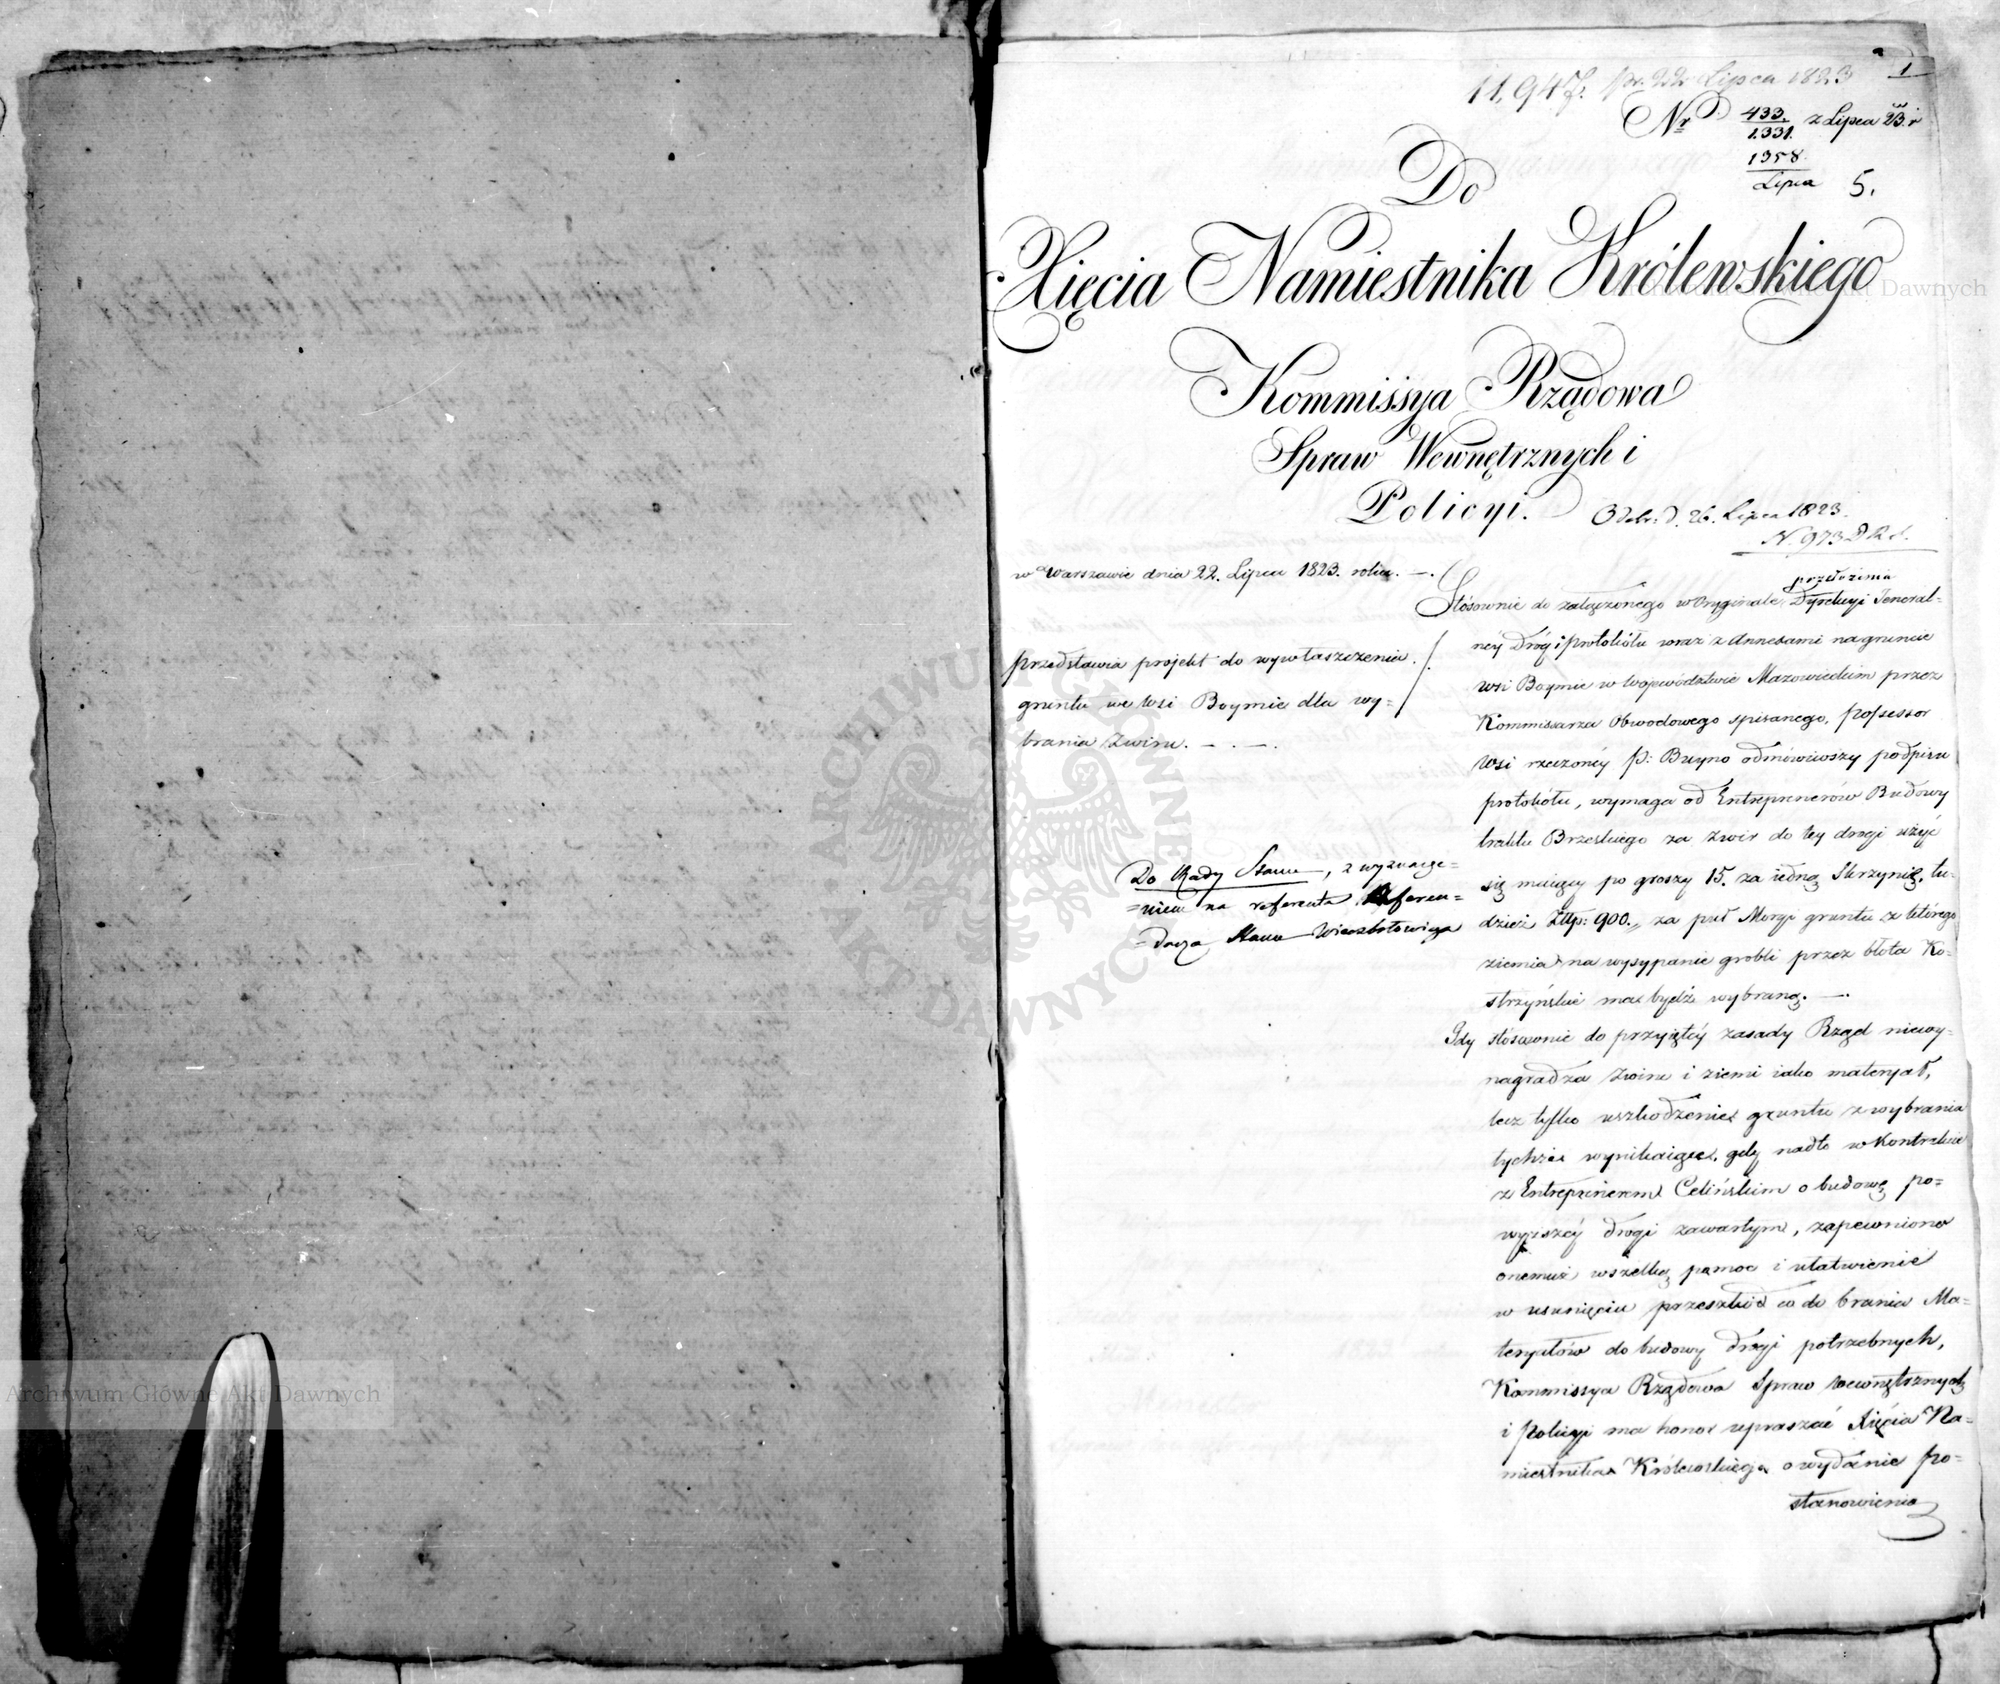 1
11,947. pr. 22 Lipca 1823
Nr 433. z Lipca 23. r
1.331.
1358.
Lipca 5.
Do
Xięcia Namiestnika Królewskiego
Kommissya Rządowa
Spraw Wewnętrznych i
Policyi.
Odebr. d. 26. Lipca 1823.
N. 973
w Warszawie dnia 22. Lipca 1823. roku. —.
przedstawia projekt do wywłaszczenia
gruntu we Wsi Boymie dla wy=
brania żwiru. —.—.
Do Rady Stanu, z wyznacze=
=niem na referenta Referen=
=darza Stanu Wierzbołowicza
przełożenia
Stósownie do załączonego w Oryginale Dyrekcyi Jeneral=
néy Dróg i protokółu wraz z Annexami na gruncie
wsi Boymie w Województwie Mazowieckim przez
Kommissarza Obwodowego spisanego, possessor
Wsi rzeczonéy P: Buyno odmówiwszy podpisu
protokółu, wymaga od Entreprenerów Budowy
traktu Brzeskiego za żwir do tey drogi użyć
się maiący po groszy 15. za iedną Skrzynię, tu=
dzież Złtp: 900., za puł Morgi gruntu z którego
ziemia na wysypanie grobli przez błota Ko=
strzyńskie ma bydź wybraną. —.
Gdy stósownie do przyiętéy zasady Rząd niewy=
nagradza żwiru i ziemi iako materyał,
lecz tylko uszkodzenie gruntu z wybrania
tychże wynikaiące, gdy nadto w Kontrakcie
z Entreprenerem Celińskim o budowę po=
wyższéy drogi zawartym, zapewniono
onemuż wszelką pomoc i ułatwienie
w usunięciu przeszkód co do brania Ma=
teryałów do budowy drogi potrzebnych,
Kommissya Rządowa Spraw Wewnętrznych
i Policyi ma honor upraszać Xięcia Na=
miestnika Królewskiego o wydanie po=
stanowienia